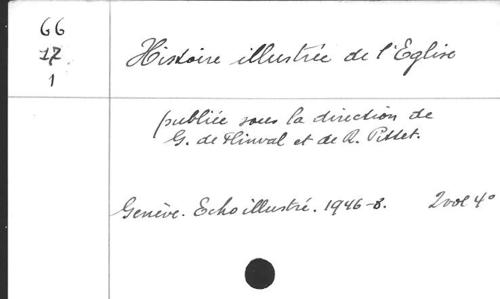 66
17
1
Histoire illustrée de l'Eglise
publiée sous la direction de
G. de Plinval et de R. Pittet.
Genève. Echo illustré. 1946-8. 2 vol 4°